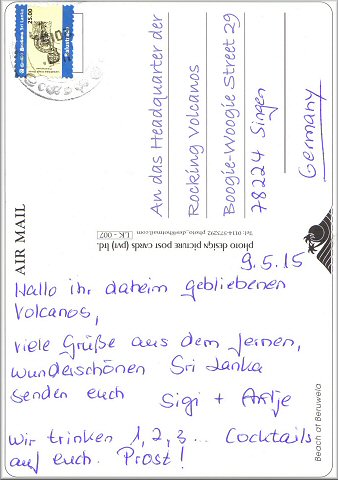 Hallo ihr daheim gebliebenen
Volcanos,
viele Grüße aus dem fernen,
wunderschönen Sri Lanka
senden euch Sigi + Antje
wir trinken 1, 2, 3... Cocktails
auf euch. Prost!
9.5.15
An das Headquarter der
Rocking Volcanos
Boogie-Woogie Street 29
78224 Singen
Germany
AIR MAIL
photo design picture post cards (pvt) ltd.
LK - 007
Beach at Beruwela
Sri Lanka
25.00